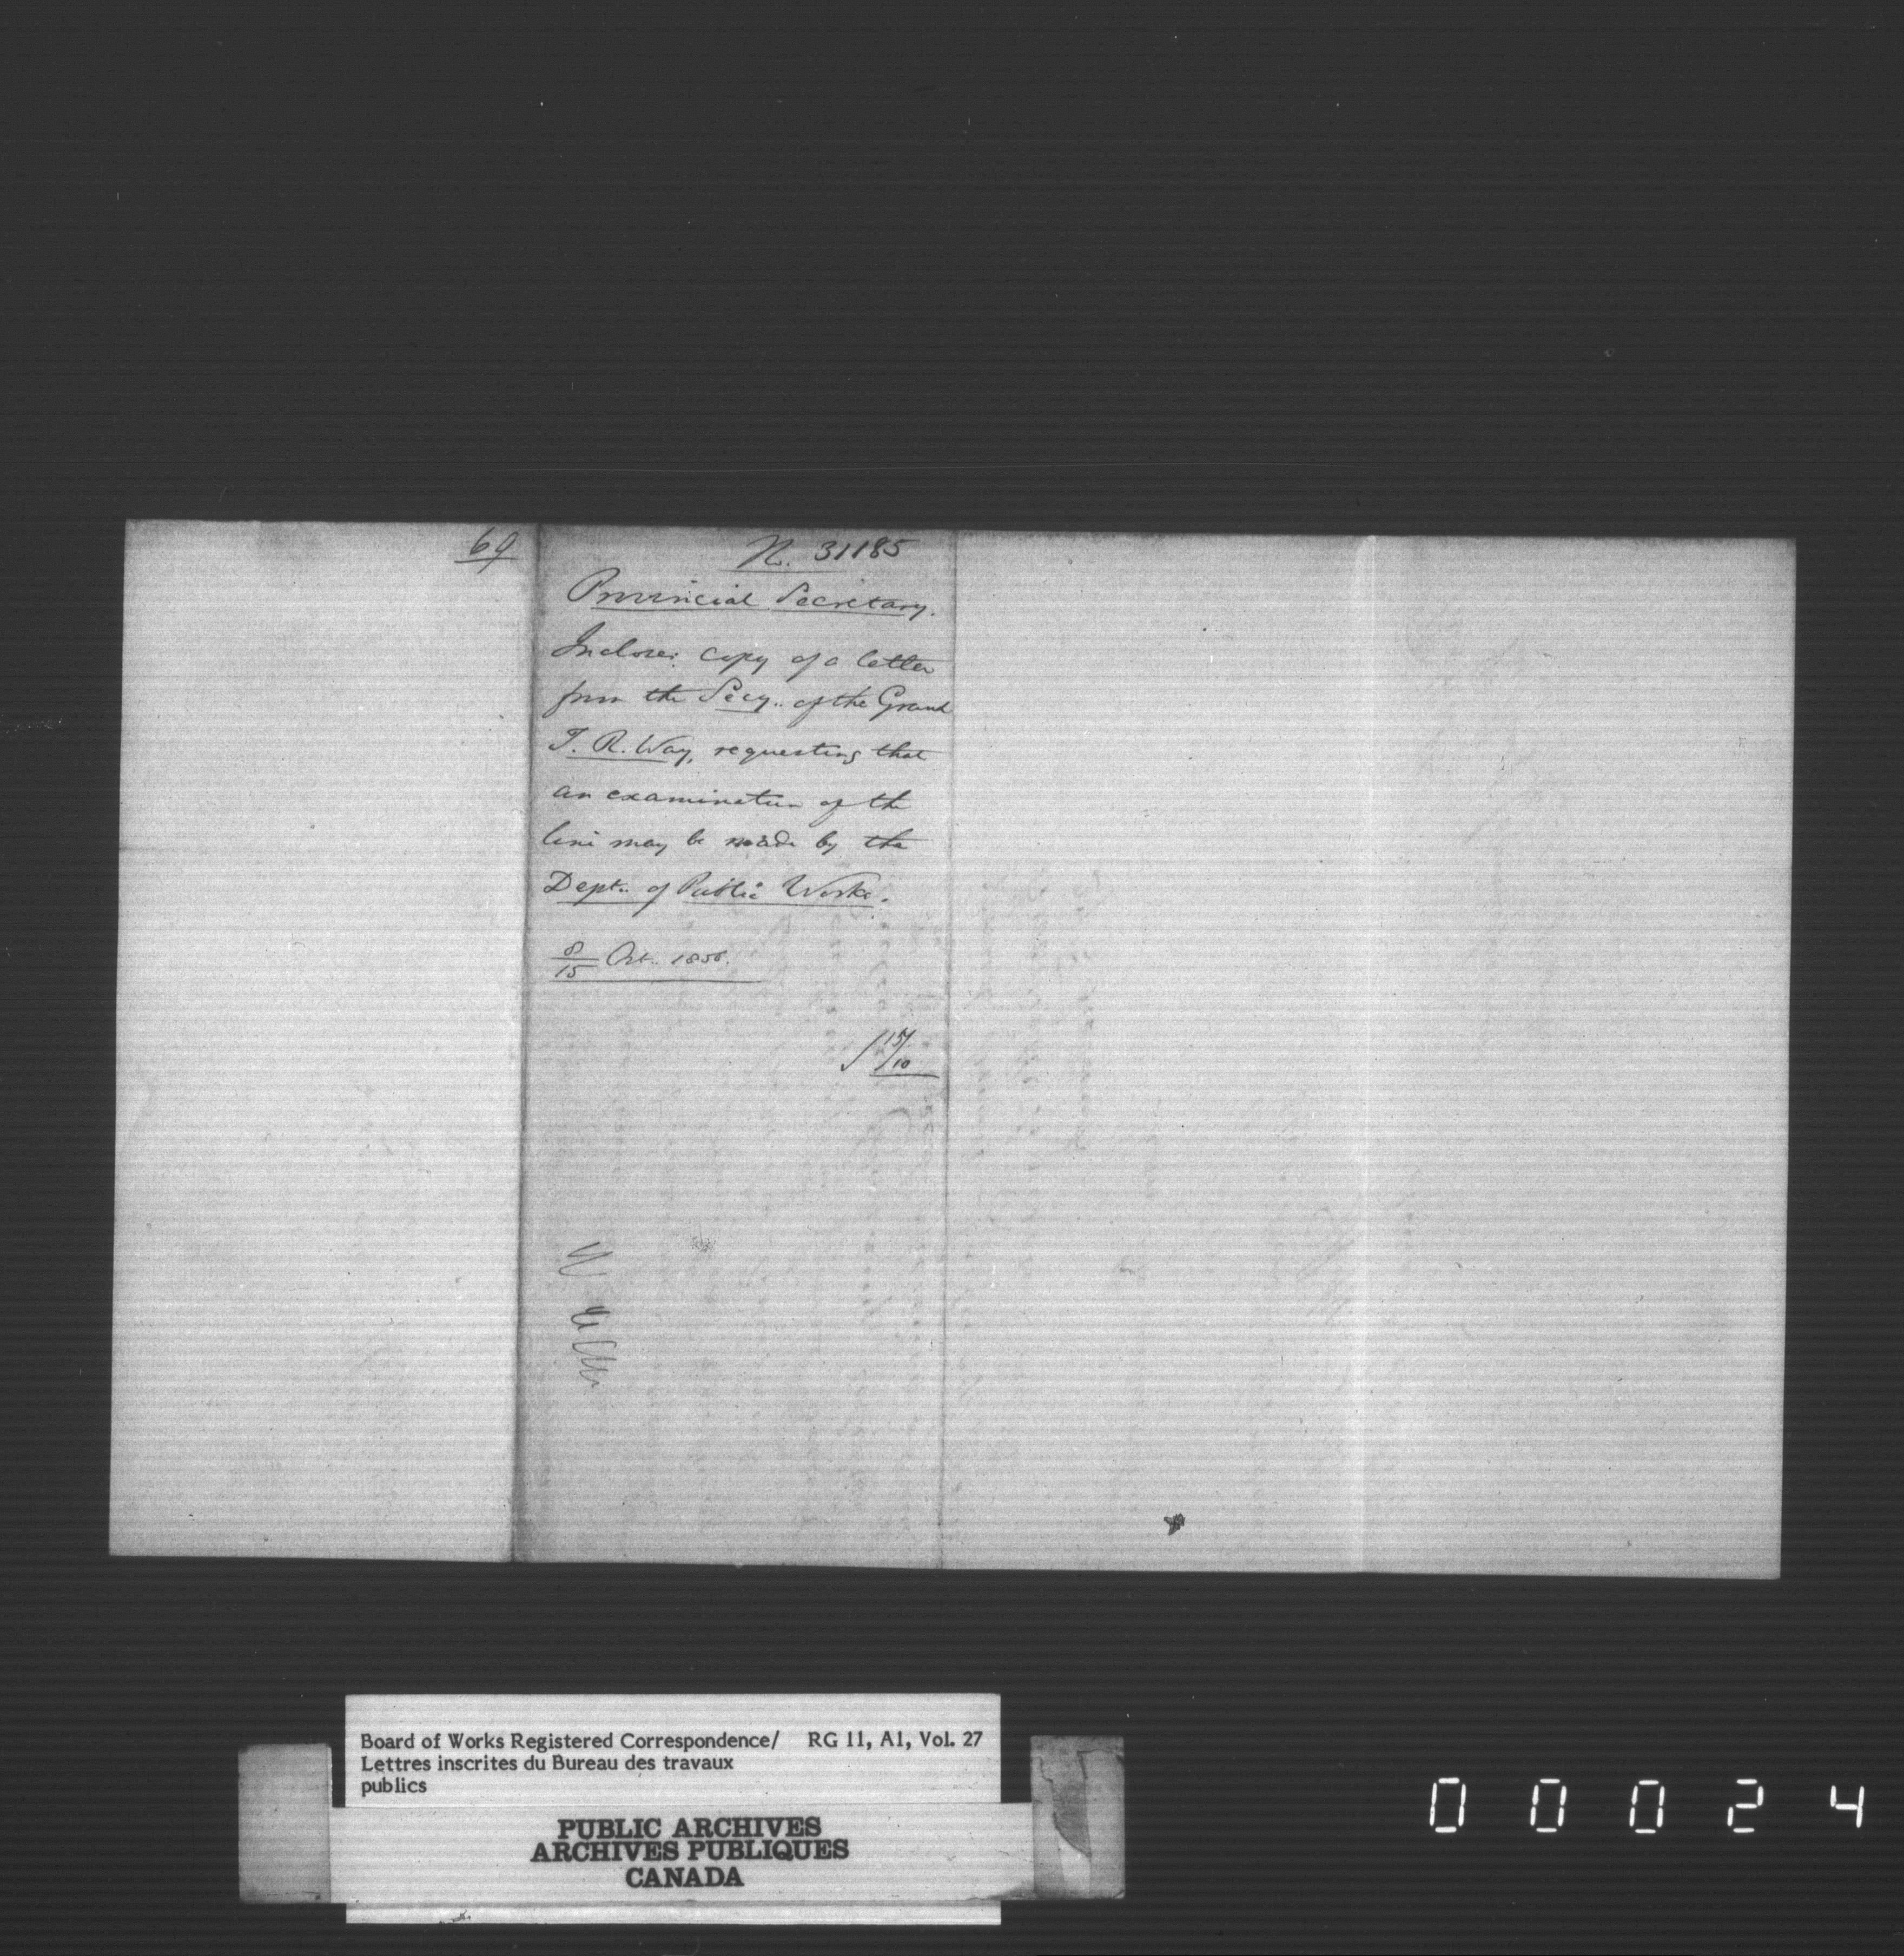 69
No. 31185
Provincial Secretary.
Incloses copy of a letter
from the Secy.. of the Grand
T. R. Way, requesting that
an examination of the
line may be made by the
Dept.. of Public Works.
8/15 Oct.. 1856.
15/10
Board of Works Registered Correspondence/ RG 11, A1, Vol. 27
Lettres inscrites du Bureau des travaux
publics
PUBLIC ARCHIVES
ARCHIVES PUBLIQUES
CANADA
00024